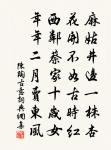 麻姑井邊一株杏
花開不如古時紅
西鄰蔡家十歲女
年年二月賣東風
陳陶古意詞興綱集